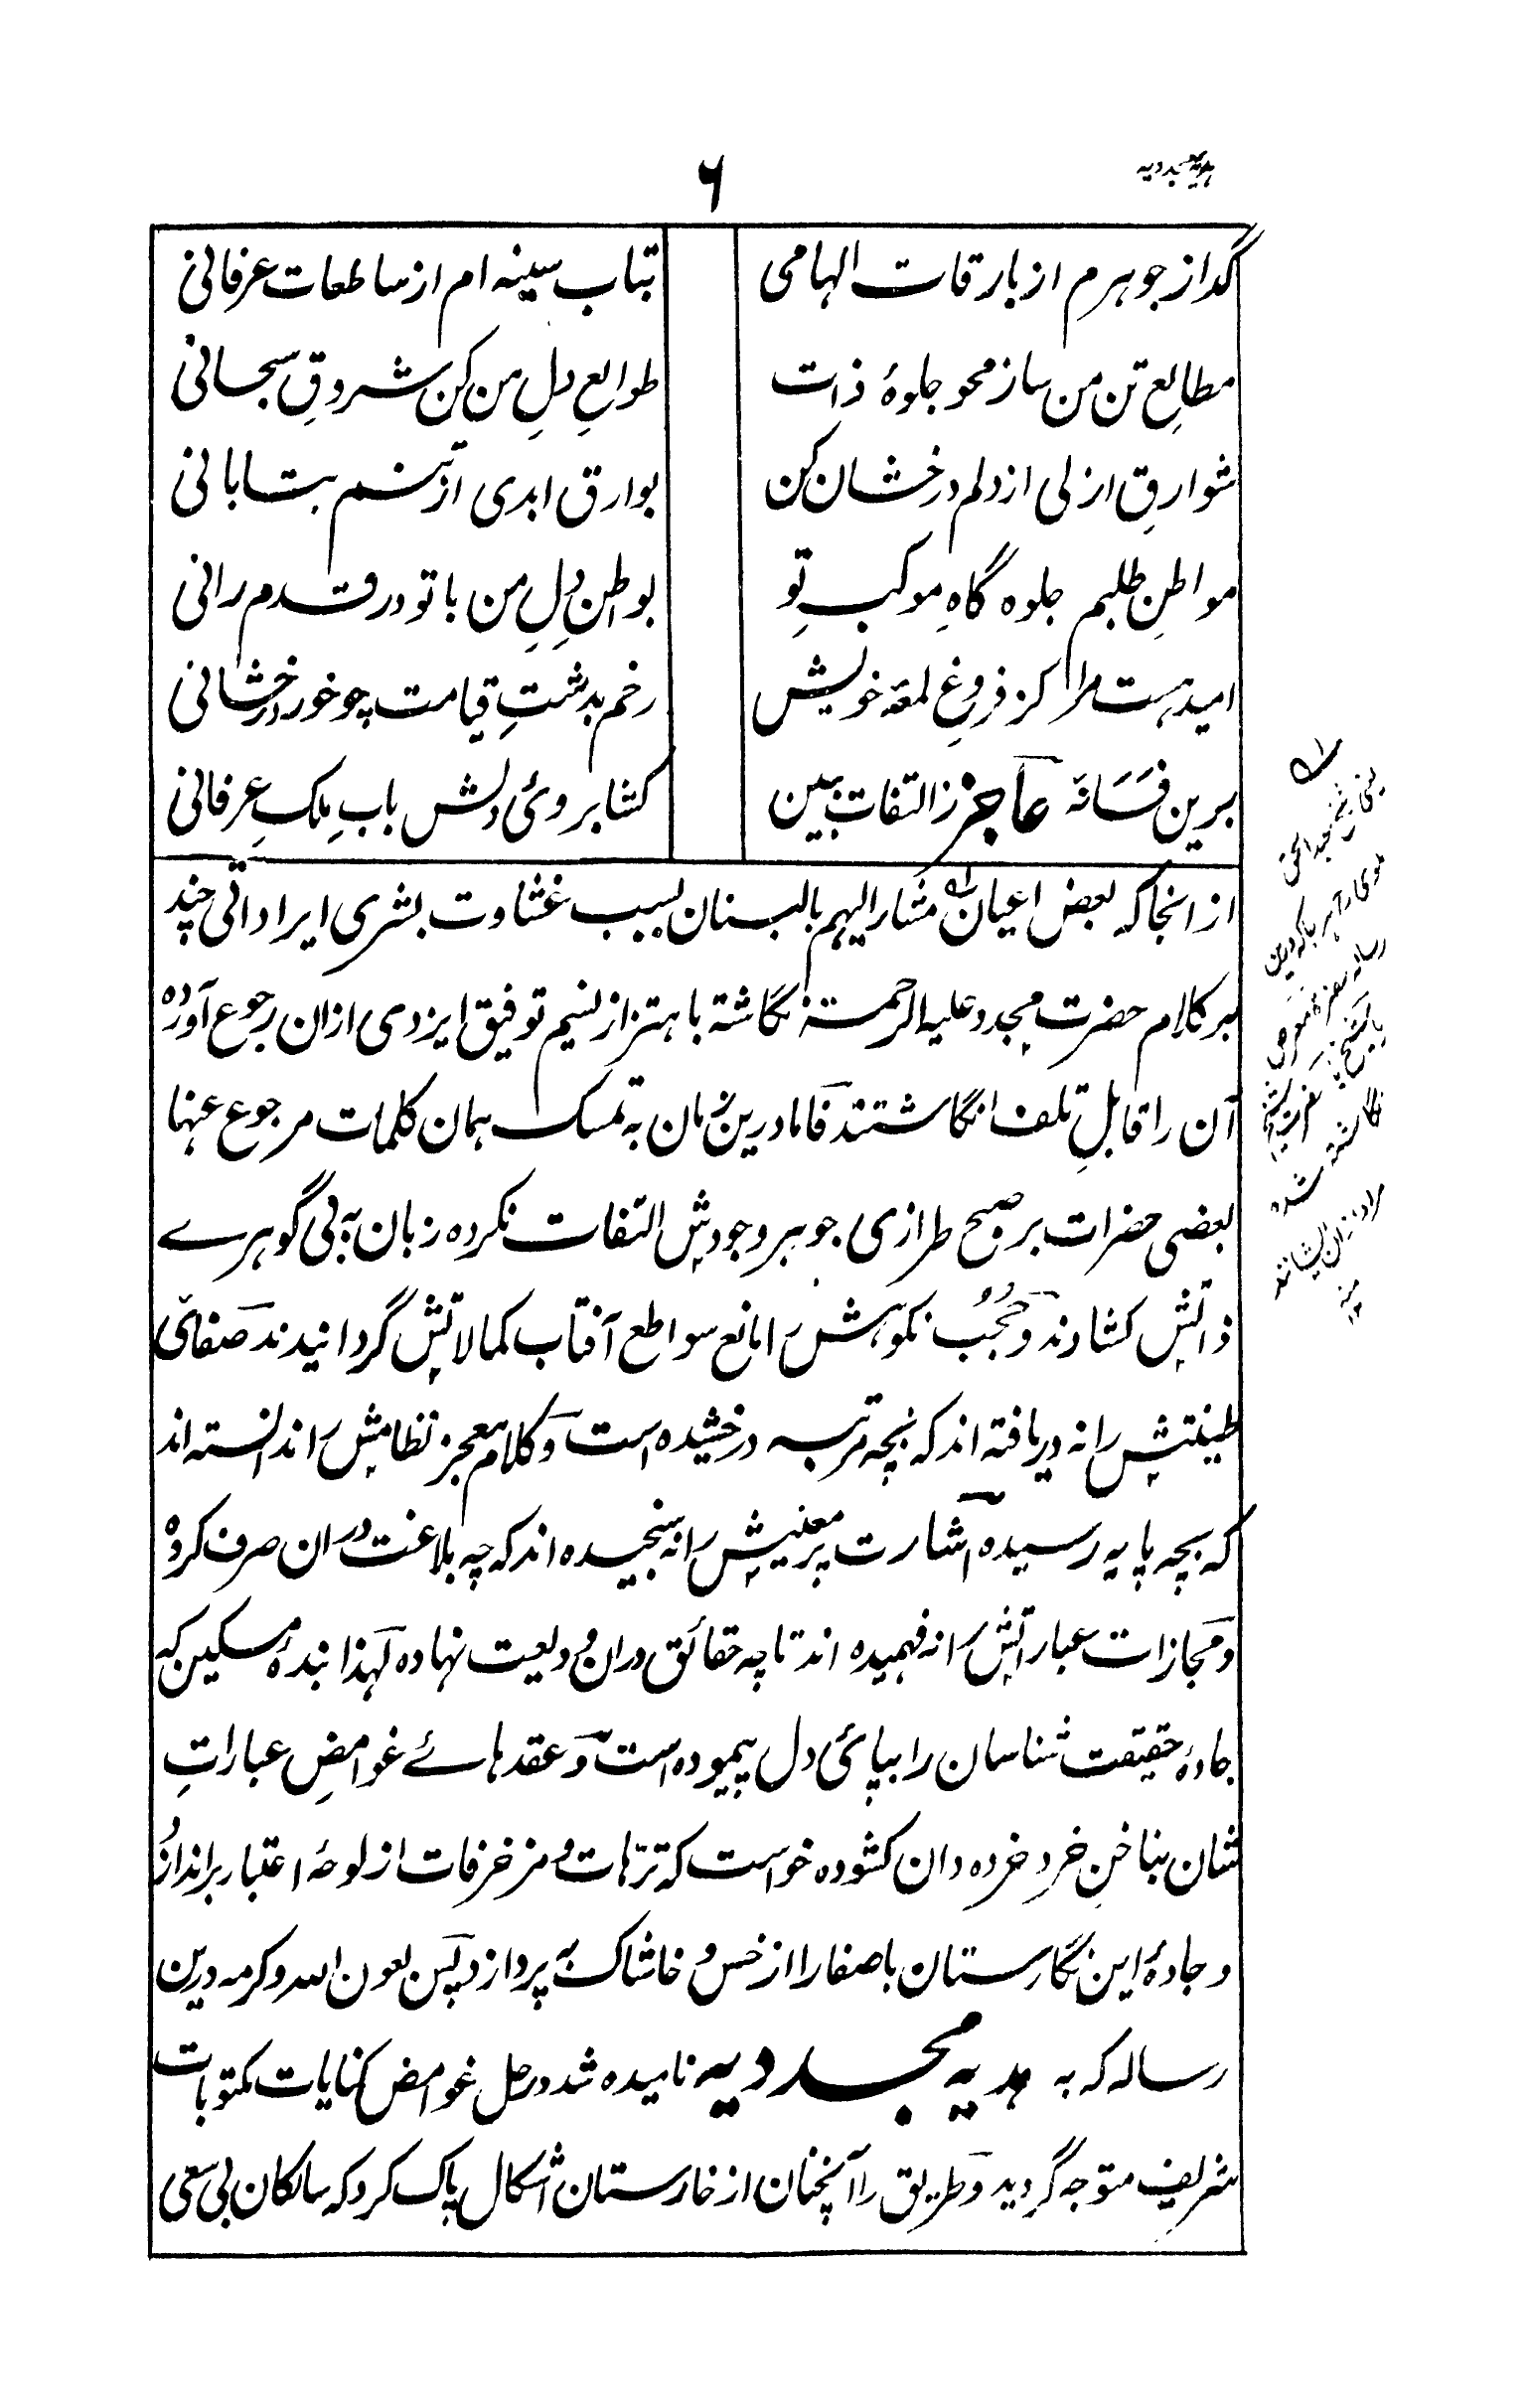 هدیه مجددیه
۶
گداز جوهرم از بارقات الهامی
بتاب سینه ام از ساطعات عرفانی
مطالعِ تن من ساز محو جلوهٔ ذات
طوالعِ دلِ من کن شروقِ سبحانی
شوارقِ ازلی از دلم درخشان کن
بوارق ابدی از تنم بتابانی
مواطنِ طلبم جلوه گاهِ موکبِ تو
بواطنِ دلِ من با تو در قدم رانی
امید هست مرا کز فروغِ لمعهٔ خویش
رخم بدشتِ قیامت چو خور درخشانی
برین فسانهٔ عاجز ز التفات ببین
کشا بروئ دلش بابِ ملکِ عرفانی
از انجا که بعض اعیان مشار الیهم بالبنان بسبب غشاوت بشری ایراداتی چند
بر کلام حضرت مجدد علیه الرحمته نگاشته باهتزاز نسیم توفیق ایزدی ازان رجوع آورده
آن را قابلِ تلف انگاشتند فاما درین زمان به تمسک همان کلمات مرجوع عنها
بعضی حضرات بر صبح طرازی جوهر وجودش التفات نکرده زبان به بی گوهرے
ذاتش کشادند و حُجُب نکوهش را مانع سواطع آفتاب کمالاتش گردانیدند صفائی
طینتش را نه دریافته اند که بچه مرتبه درخشیده است و کلام معجز نظامش را ندانسته اند
که بچه پایه رسیده اشارت پر معنیش را نه سنجیده اند که چه بلاغت دران صرف کرده
و مجازات عباراتش را نه فهمیده اند تا چه حقائق دران ودیعت نهاده لهذا بندهٔ مسکین که
جادهٔ حقیقت شناسان را بپائ دل پیموده است و عقدهائے غوامضِ عباراتِ
شان بناخنِ خردِ خرده دان کشوده خواست که ترّهات و مزخرفات از لوحهٔ اعتبار براندازد
و جادهٔ این نگارستان باصفا را از خس و خاشاک به پردازد پس بعون الله و کرمه درین
رساله که به هدیه مجددیه نامیده شد در حل غوامض کنایات مکتوبات
شریف متوجه گردید و طریق را آنچنان از خارستان اشکال پاک کرد که سالکان بی سعی
یعنی شیخ عبدالحق